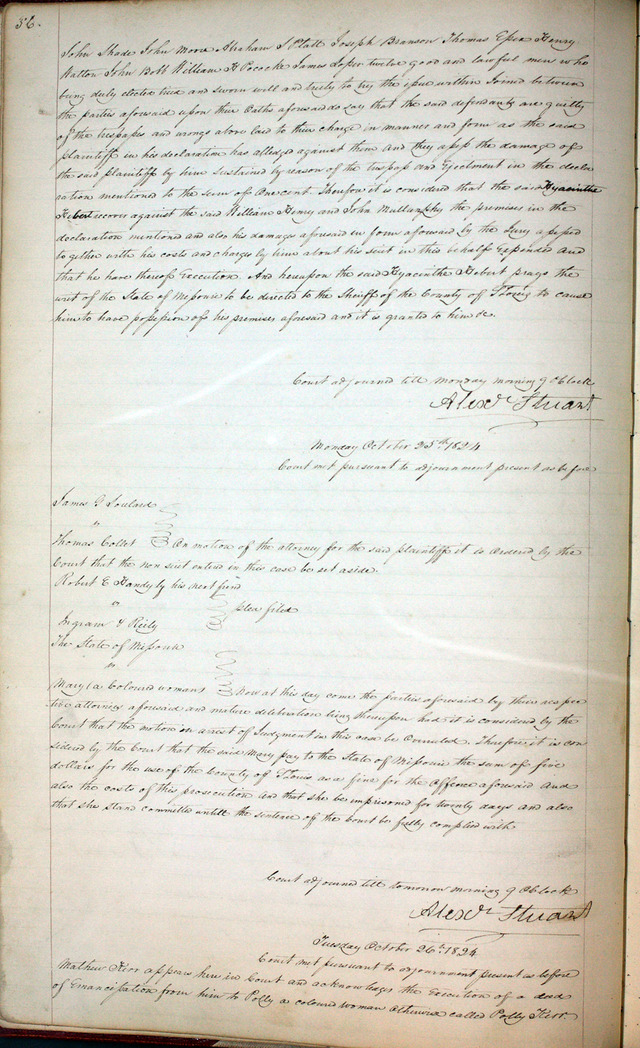 56.
John Shade John More Abraham S Platt Joseph Branson Thomas Essex Henry
Walton John Bobb William H Pococke James Loper twelve good and lawful men who
being duly elected tried and sworn well and truly to try the issue within Joined between
the parties aforesaid upon their Oaths aforesaid do say that the said defendants are guilty
of the trespasses and wrongs above laid to their charge in manner and form as the said
plaintiff in his declaration has alledged against them and they assess the damage of
the said plaintiff by him Sustained by reason of the trespass and Ejectment in the decla
ration mentioned to the sum of One cent. Therefore it is considered that the said Hyacinthe
Hebert recover against the said William Henry and John Mullanphy the premises in the
declaration mentioned and also his damages aforesaid in form aforesaid by the Jury assessed
together with his costs and charges by him about his suit in this behalf Expended and
that he have thereof Execution. And hereupon the said Hyacinthe Hebert prays the
writ of the State of Missouri to be directed to the Sheriff of the County of St Louis to cause
him to have possession of his premises aforesaid and it is granted to him &c.
Court adjourned till Monday morning 9 OClock
Alexr Stuart
Monday October 25th 1824
Court met pursuant to adjournment present as before
James G Soulard
vs
Thomas Collet On motion of the attorney for the said plaintiff it is Ordered by the
Court that the non suit entered in this case be set aside.
Robert E Handy by his next friend
vs plea filed
Ingram & Reily
The State of Missouri
vs.
Mary (a Coloured woman) Now at this day come the parties aforesaid by their respec
tive attornies aforesaid and mature deliberation being thereupon had it is considered by the
Court that the motion in arrest of Judgment in this case be Overruled. Therefore it is con
sidered by the Court that the said Mary pay to the State of Missouri the sum of five
dollars for the use of the County of St Louis as a fine for the Offence aforesaid and
also the costs of this prosecution and that she be imprisoned for twenty days and also
that she stand committed untill the sentence of the Court be fully complied with
Court adjourned till tomorrow morning 9 OClock
Alexr Stuart
Tuesday October 26th 1824
Court met pursuant to adjournment present as before
Mathew Kerr appears here in Court and acknowledges the Execution of a deed
of Emancipation from him to Polly a coloured woman otherwise called Polly Kerr.